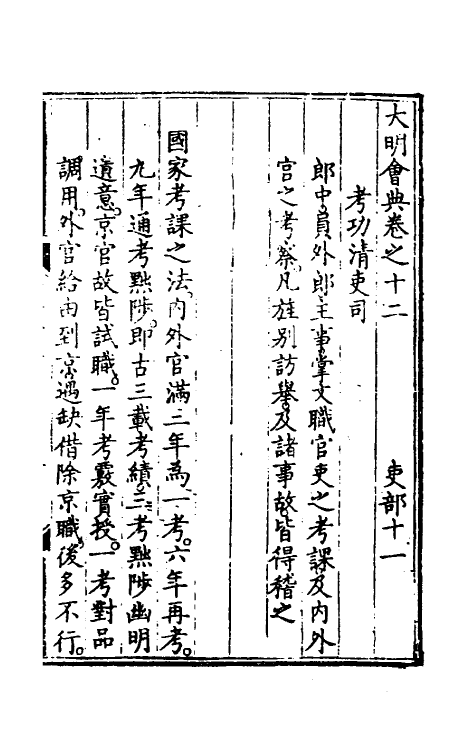 大明會典卷之十二 吏部十一
考功清吏司
郎中員外郎主事掌文職官吏之考課及內外
官之考察凡旌別訪舉及諸事故皆得稽之
國家考課之法內外官滿三年為一考。六年再考。
九年通考黜陟。即古三載考績三考黜陟幽明
遺意。京官故皆試職。一年考覈實授。一考對品
調用。外官給由到京遇缺借除京職。後多不行。